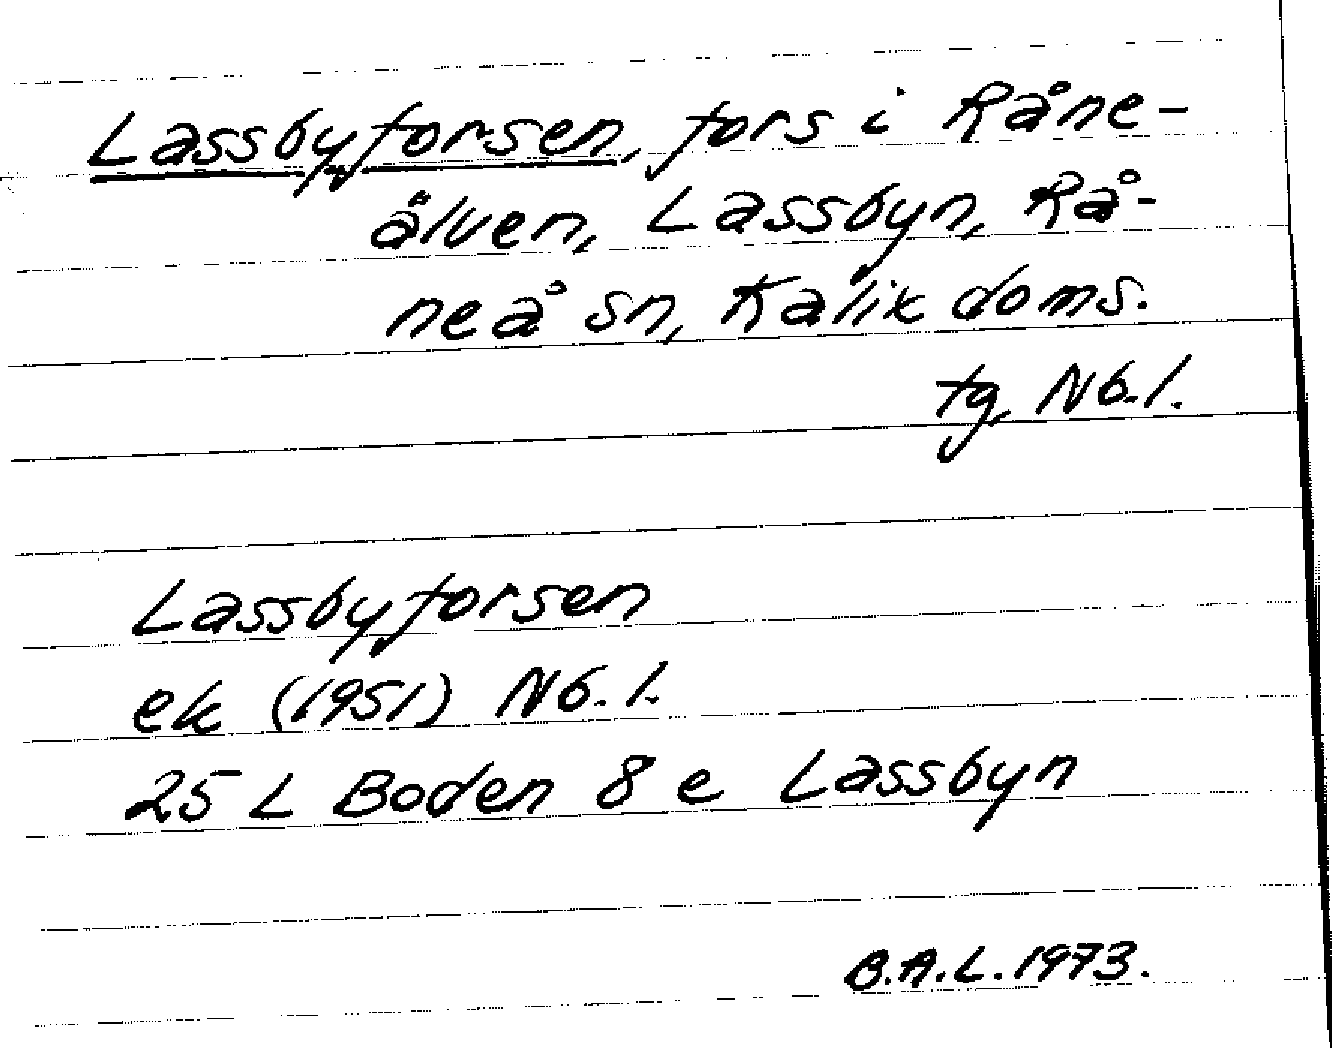 Lassbyforsen, fors i Råne-
älven, Lassbyn, Rå-
neå sn, Kalix doms.
tg, Nb. l.
Lassbyforsen
ek (1951) Nb. l.
25 L Boden 8 e Lassbyn
B.A.L. 1973.